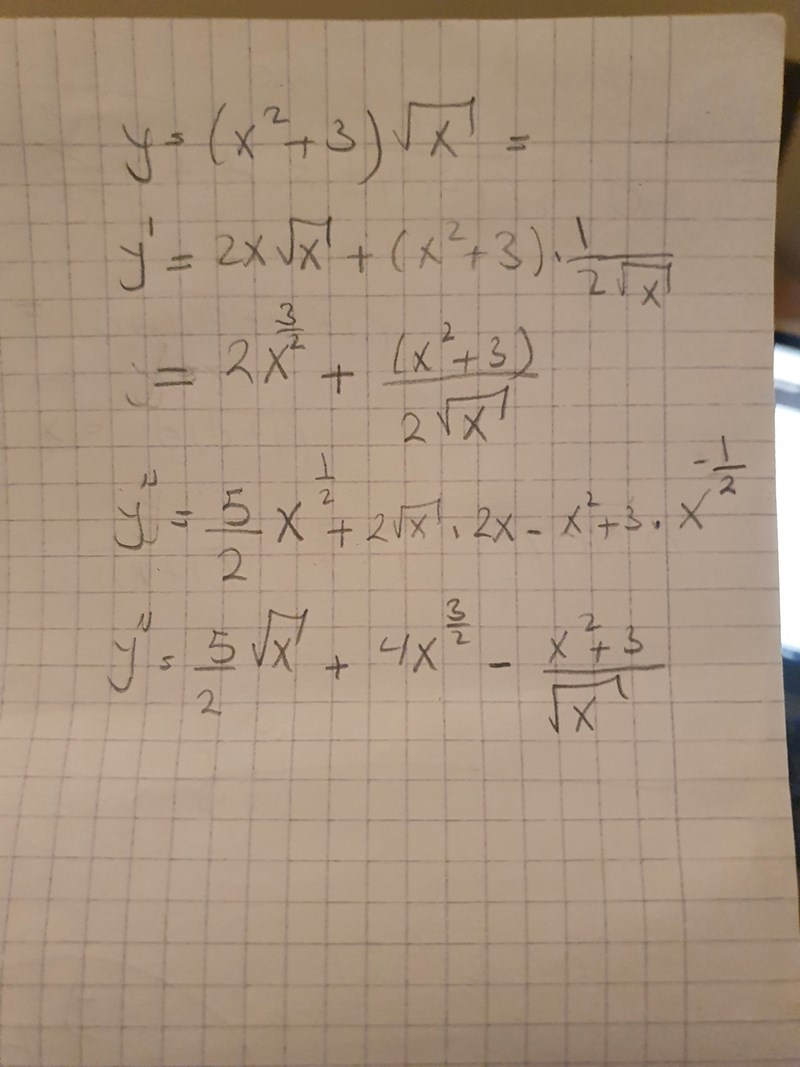 y = (x² + 3) √x =
y' = 2x √x + (x² + 3) · 1/(2√x)
= 2x^(3/2) + (x² + 3)/(2√x)
y'' = 5/2 x^(1/2) + 2√x · 2x - x² + 3 · x^(-1/2)
y'' = 5/2 √x + 4x^(3/2) - (x² + 3)/√x